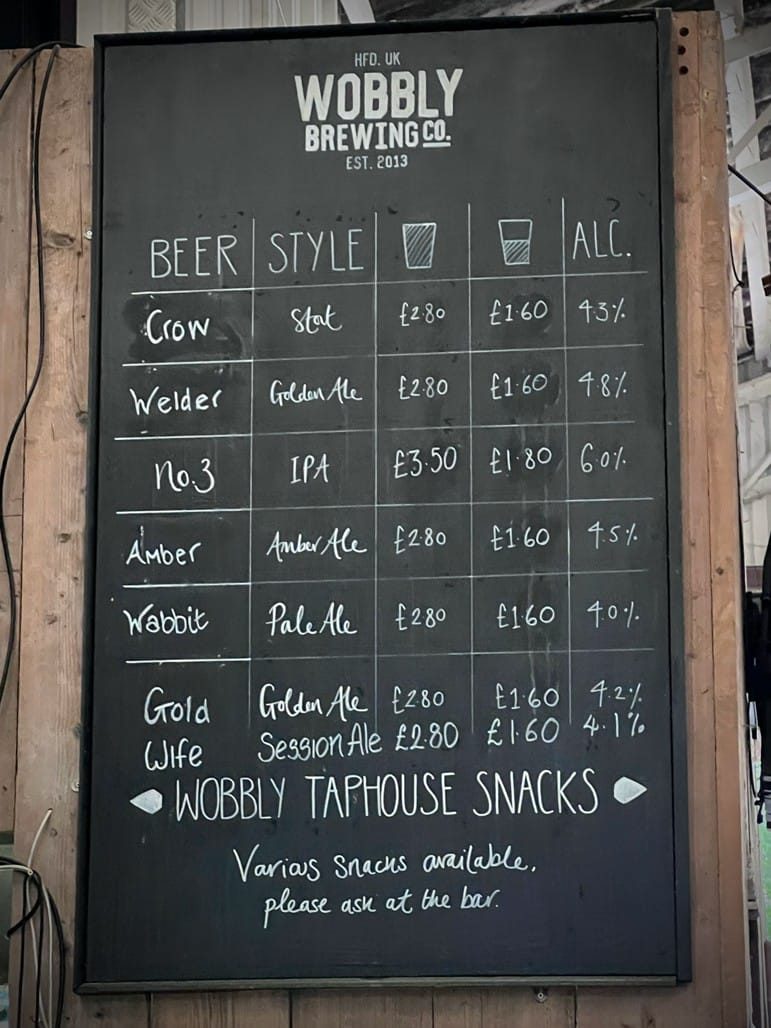 HFD. UK
WOBBLY
BREWING CO.
EST. 2013
BEER STYLE ALC.
Crow Stout £2.80 £1.60 4.3%
Welder Golden Ale £2.80 £1.60 4.8%
No.3 IPA £3.50 £1.80 6.0%
Amber Amber Ale £2.80 £1.60 4.5%
Wabbit Pale Ale £2.80 £1.60 4.0%
Gold Golden Ale £2.80 £1.60 4.2%
Wife Session Ale £2.80 £1.60 4.1%
WOBBLY TAPHOUSE SNACKS
Various snacks available,
please ask at the bar.